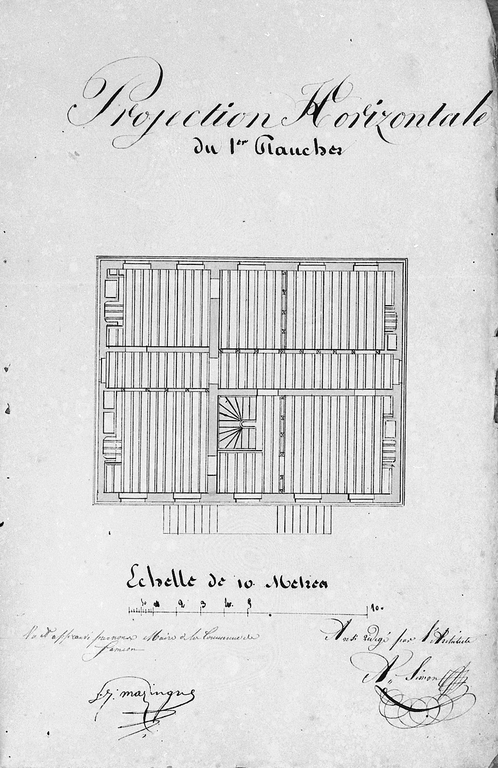 Projection Horizontale
du 1er Plancher
Echelle de 10 Metres
1 2 3 4 5 10
Vu et approuvé par nous Maire de la Commune de
rédigé par l'Architecte
A. Simon